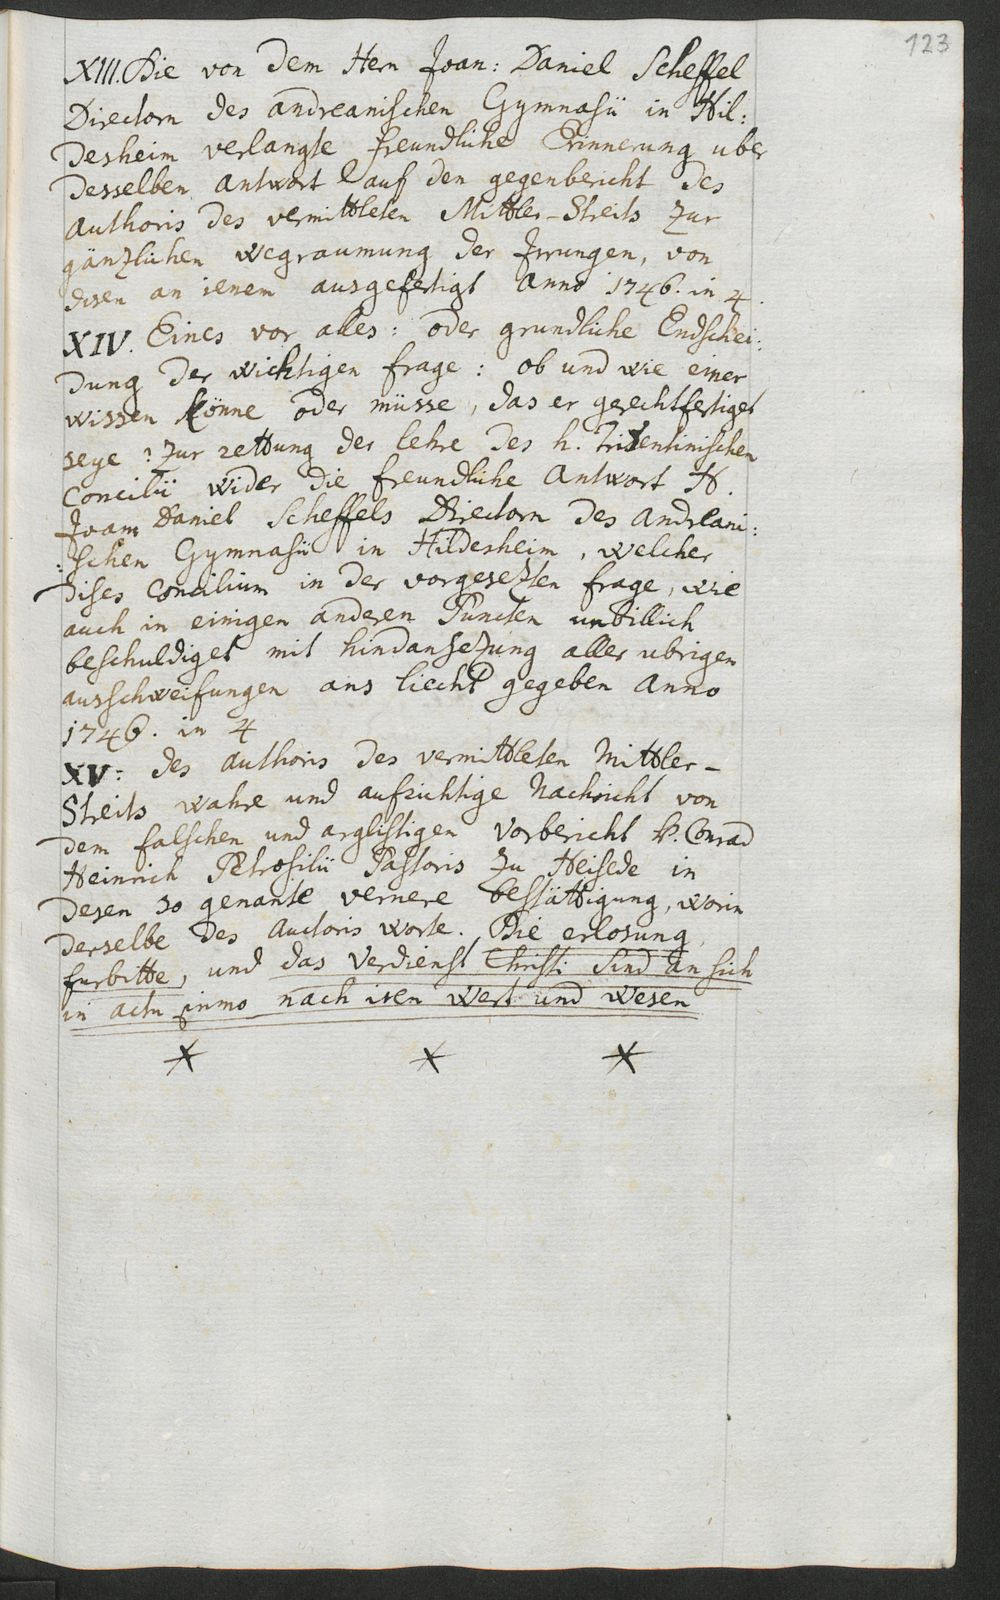 123
XIII. Die von dem Hern Joan: Daniel Scheffel
Directorn des andreanischen Gymnasii in Hil:
desheim verlangte freundliche Erinnerung uber
desselben antwort auf den gegenbericht des
authoris des vermittleten Mittler-Streits zur
gänzlichen wegraumung der Jrrungen, von
disen an ienem ausgefertigt Anno 1746. in 4.
XIV. Eines vor alles: oder grundliche Endschei:
dung der wichtigen frage: ob und wie einer
wissen könne oder müsse, das er gerechtfertiget
seye? zur rettung der lehre des h. Tridentinischen
Concilii wider die freundliche Antwort H.
Joam Daniel Scheffels Directorn des Andreani:
:schen Gymnasii in Hildesheim, welcher
dises Concilium in der vorgesezten frage, wie
auch in einigen anderen Puncten unbillich
beschuldiget mit hindansezung aller ubrigen
ausschweifungen ans liecht gegeben Anno
1746. in 4
XV: des authoris des vermittleten Mittler-
Streits wahre und aufrichtige Nachricht von
dem falschen und arglistigen Vorbericht H. Conrad
Heinrich Petrosilii Pastoris zu Heisede in
desen so genante vernere bestättigung, worin
derselbe des Auctoris worte. Die erlosung,
furbitte, und das Verdienst Christi sind an sich
in actu primo nach iren Wert und Wesen